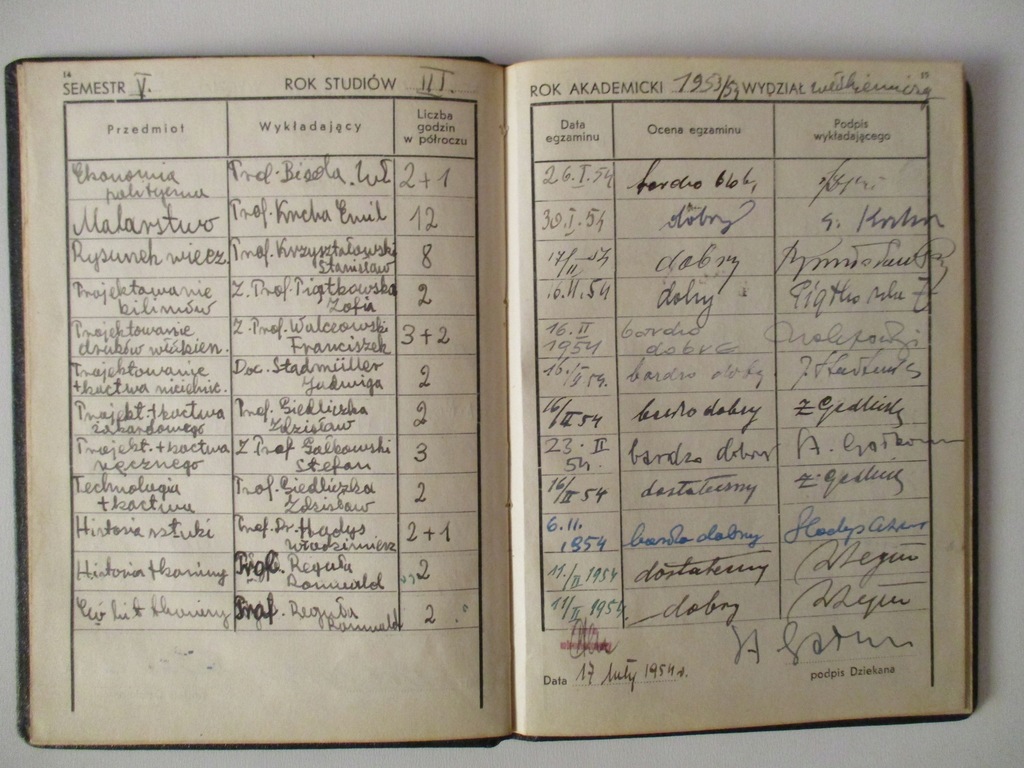 14
SEMESTR V. ROK STUDIÓW III.
Przedmiot Wykładający Liczba godzin w półroczu
Ekonomia Prof. 2+1
polityczna
Malarstwo Prof. Krcha Emil 12
Rysunek wiecz. Prof. Krzyształowski 8
Stanisław
Projektowanie Z. Prof. Piątkowska 2
kilimów Zofia
Projektowanie Z. Prof. Walczowski 3+2
druków włókien. Franciszek
Projektowanie Doc. Stadmüller 2
tkactwa nicielnic. Jadwiga
Projekt. tkactwa Prof. Giedliczka 2
żakardowego Zdzisław
Projekt. tkactwa Z Prof Gałkowski 3
ręcznego Stefan
Technologia Prof. Giedliczka 2
tkactwa Zdzisław
Historia sztuki Prof. Dr. Hodys 2+1
Włodzimierz
Historia tkaniny Prof. Reguła 2
Romuald
tkaniny Prof. Reguła 2
Romuald
15
ROK AKADEMICKI 1953/54 WYDZIAŁ włókienniczy
Data egzaminu Ocena egzaminu Podpis wykładającego
26.I.54 bardzo dob.
30.I.54 dobry E. Krcha
17/II 54 dobry
16.II.54 dobry Piątkowska Z
16.II bardzo
1954 dobrze
16./II 54. bardzo dobry J. Stadtmüller
16/II 54 bardzo dobry Z Giedliczk
23. II
54. bardzo dobry St. Gałkowski
16/II 54 dostateczny Z Giedliczk
6.II.
1954 bardzo dobry Hodys
11./II 1954 dostateczny
11/II 1954 dobry
St Gałkow
Data 17 luty 1954 r. podpis Dziekana